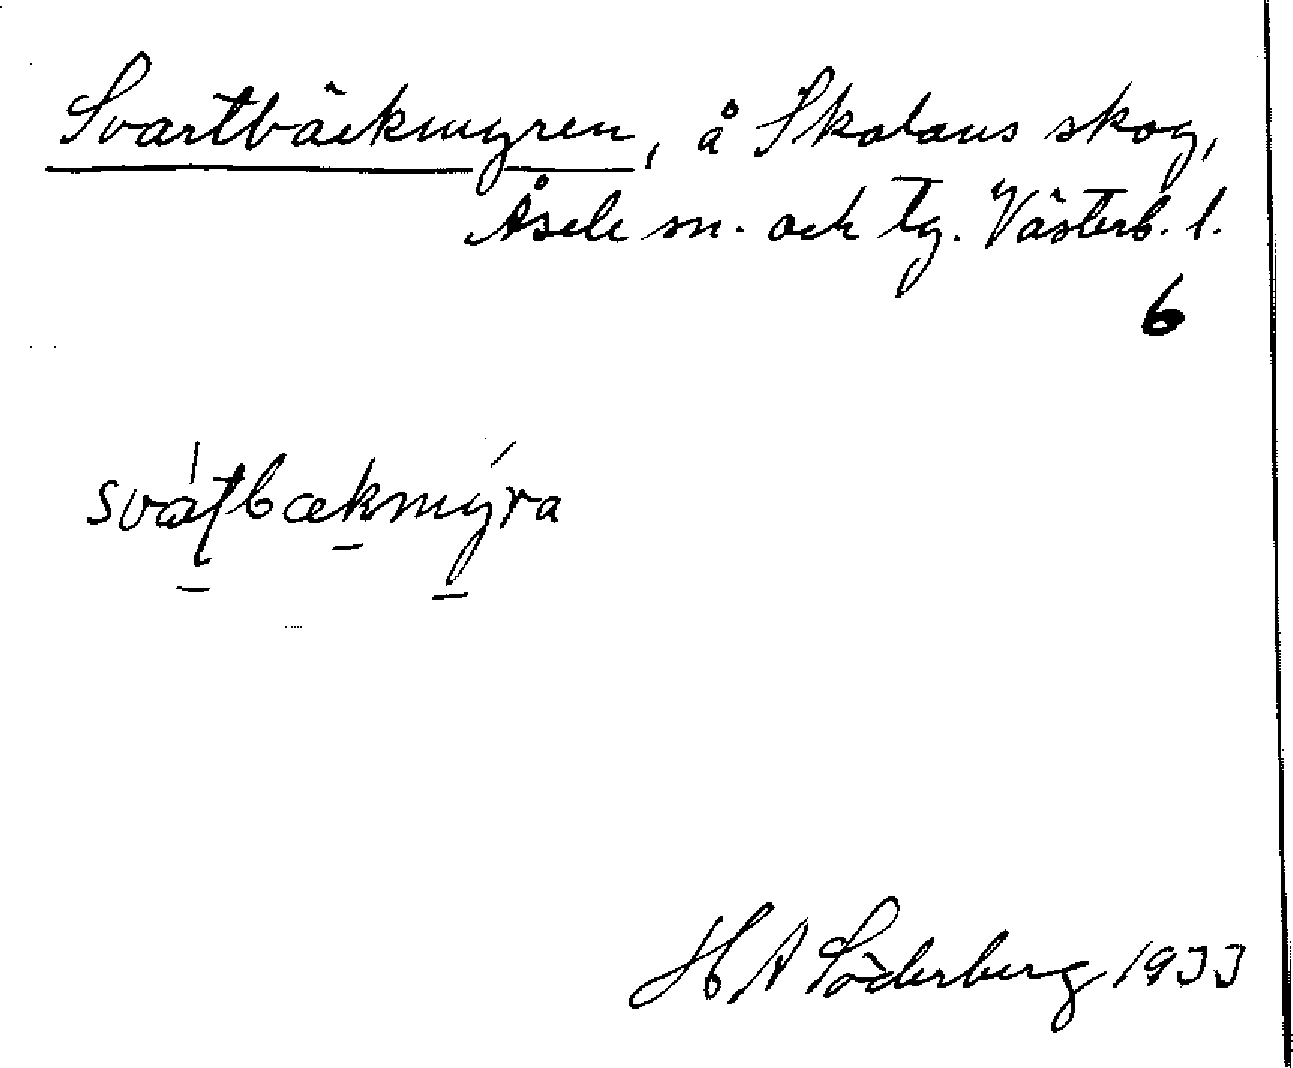 Svartbäckmyren, å Skalans skog,
Åsele sn. och tg. Västerb. l.
6
svatbækmýra
H A Söderberg 1933